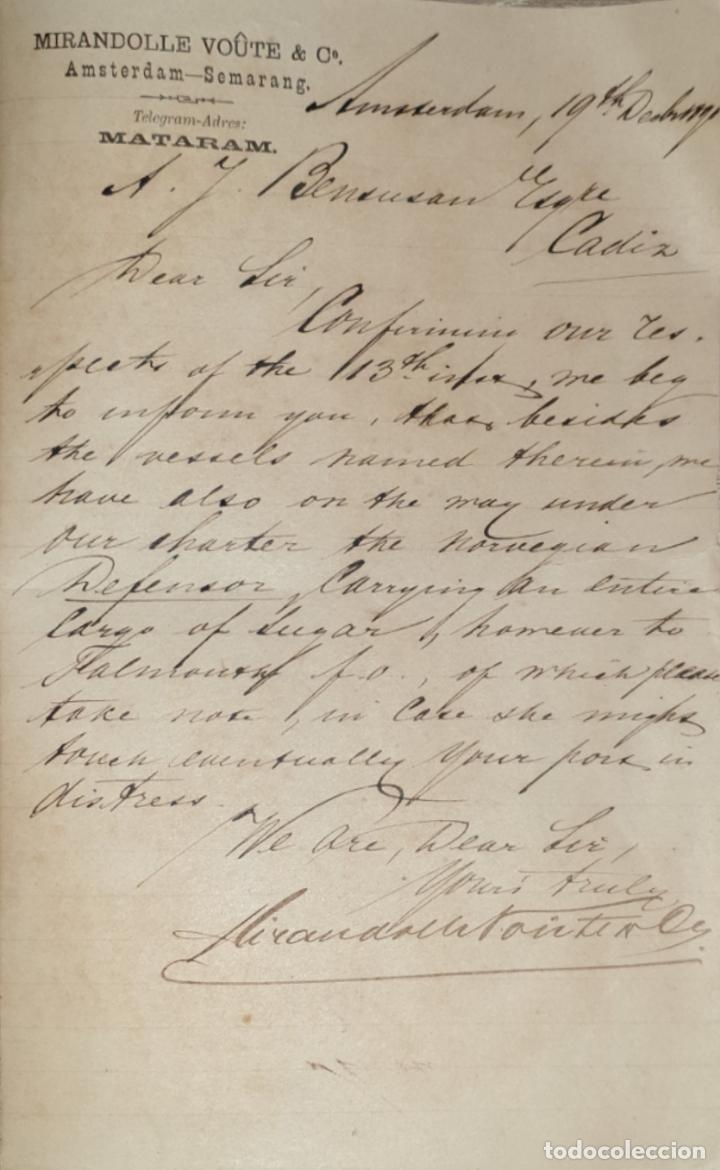 MIRANDOLLE VOÛTE & Co.
Amsterdam—Semarang.
Telegram-Adres:
MATARAM.
Amsterdam, 19th Decbr
A. J. Bensusan Esqre
Cadiz
Dear Sir,
Confirming our res-
pects of the 13th inst, we beg
to inform you, that besides
the vessels named therein, we
have also on the way under
our charter the norvegian
Defensor, Carrying an entire
Cargo of Sugar, however to
Falmouth f.o., of which please
take note, in Case she might
touch eventually Your port in
distress.
We are, Dear Sir,
Yours truly,
Mirandolle Voûte & Co.
todocoleccion